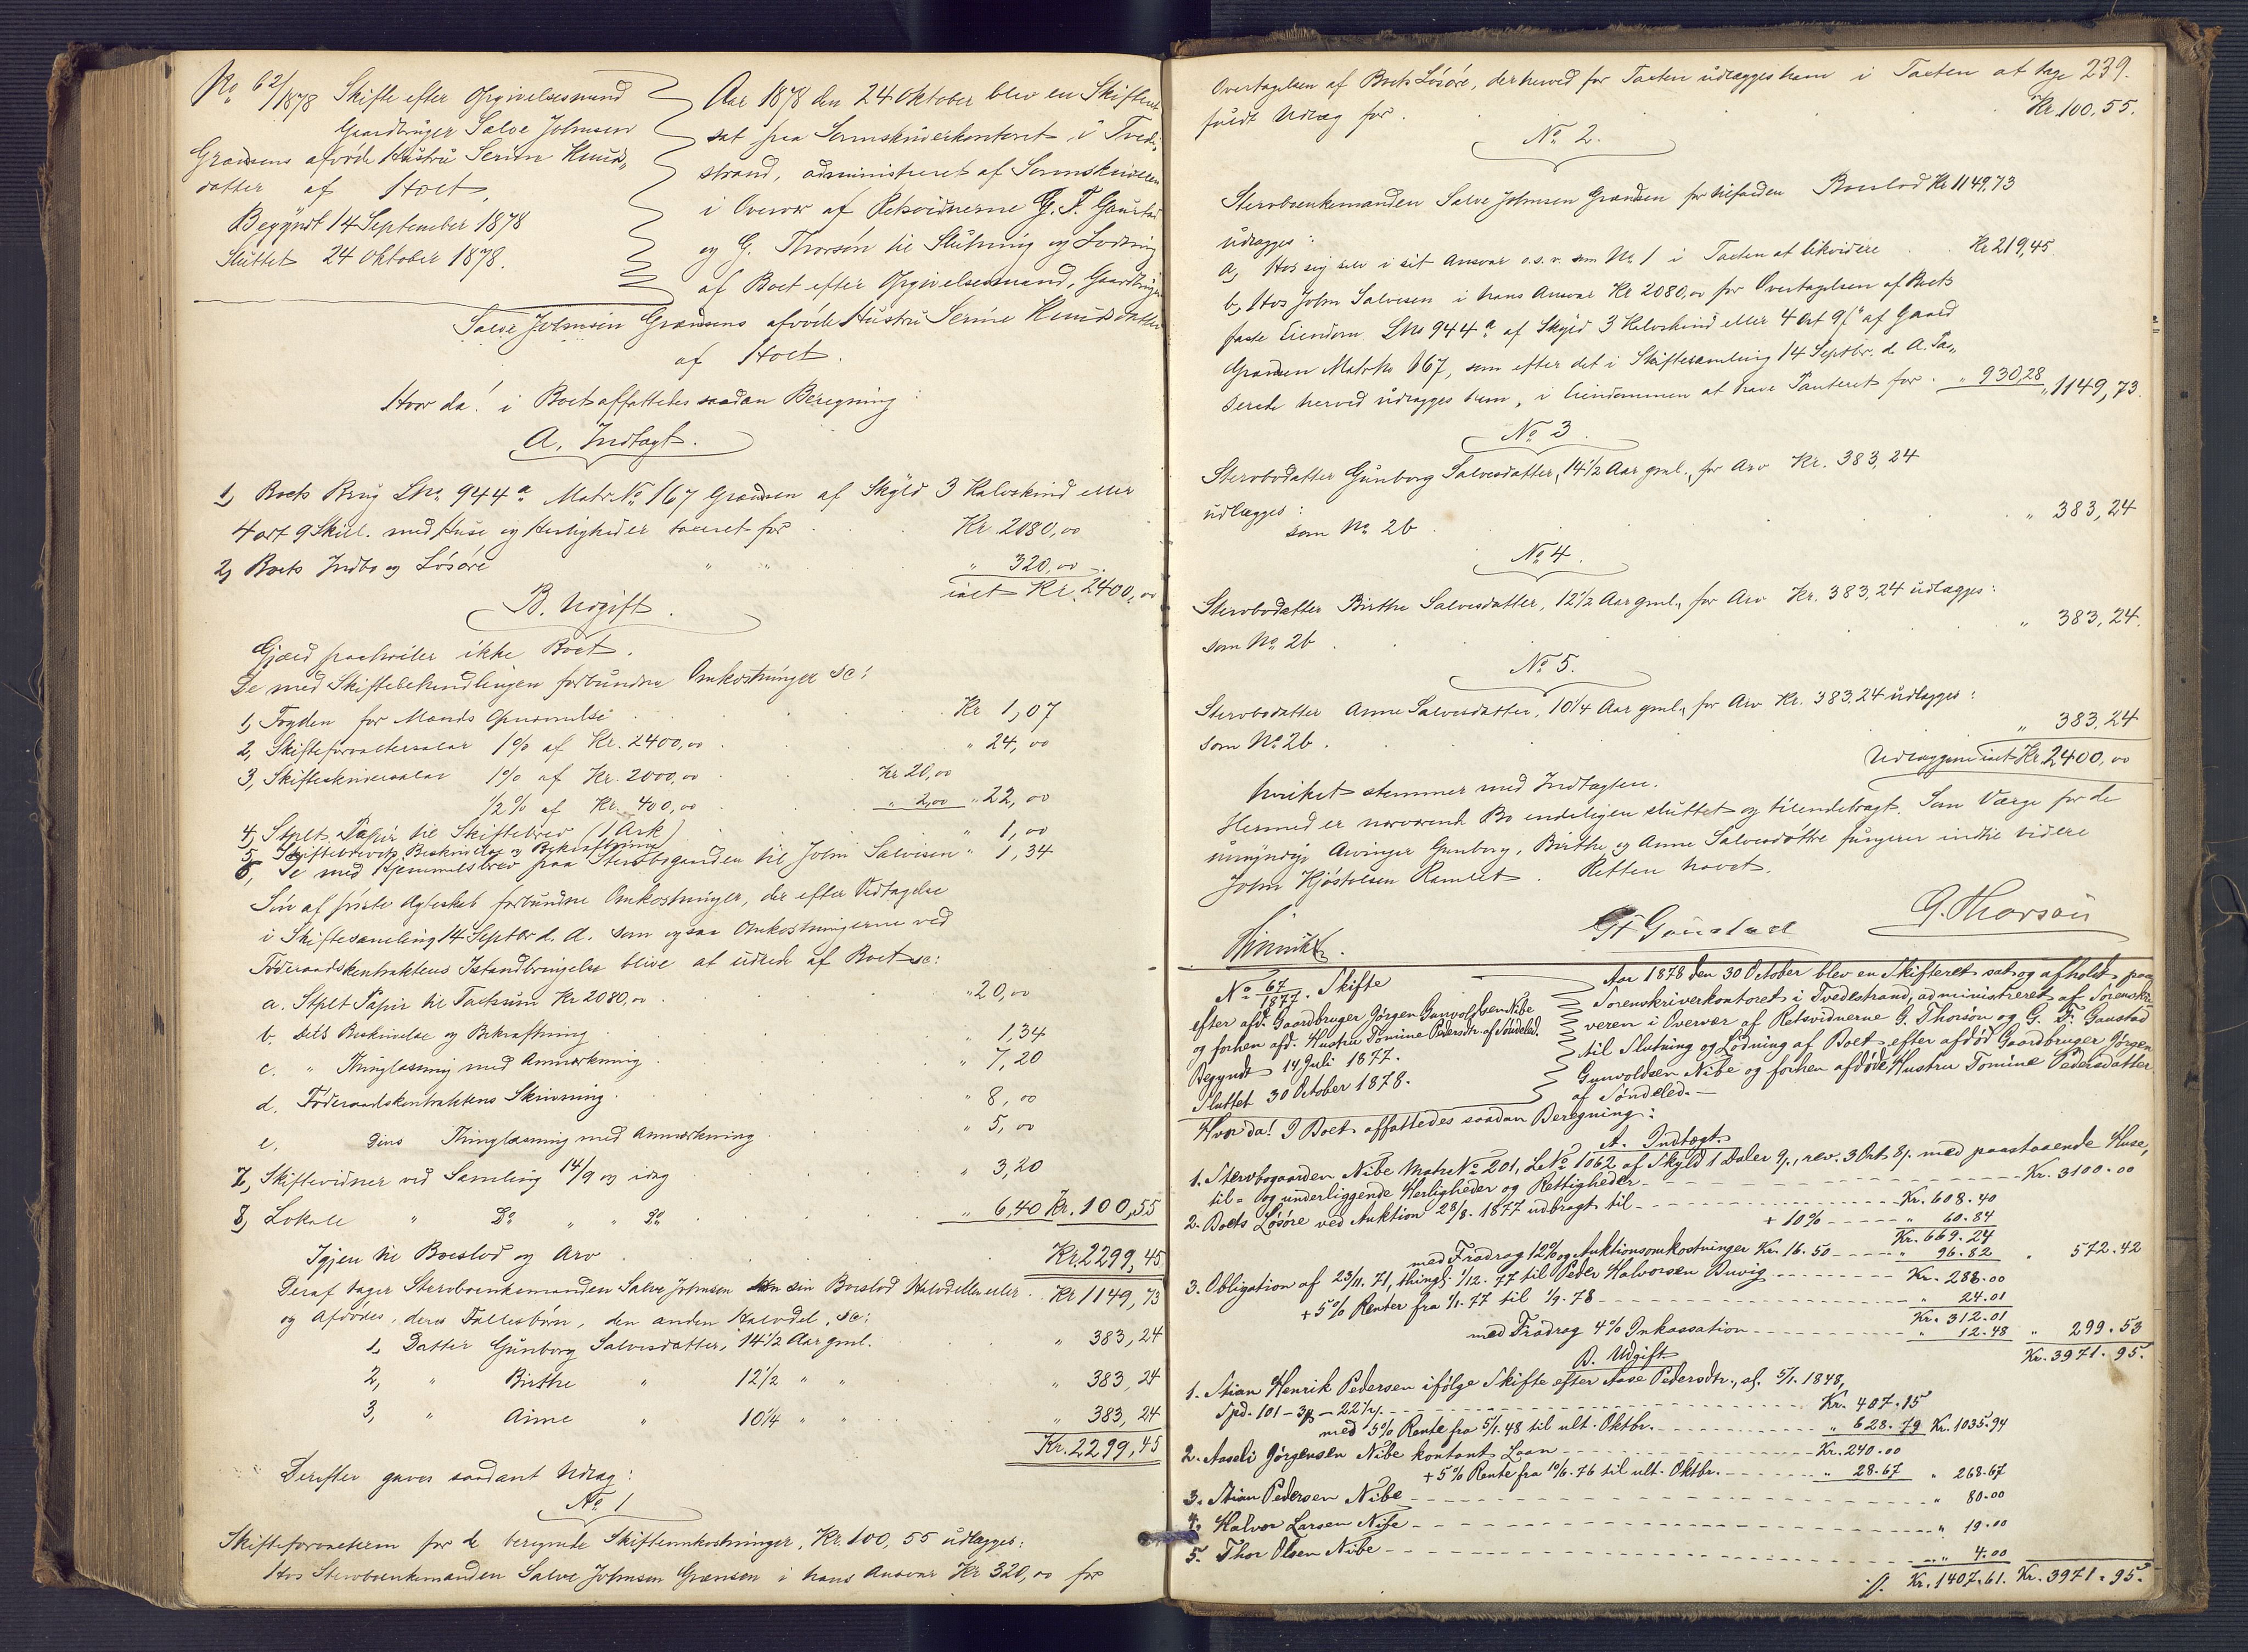 No 62/1878 Skifte efter Opgivelsesmand
Gaardbruger Salve Johnsen
Grændsens afdøde Hustru Serine Knuds„
datter af Holt,
Begyndt 14 September 1878
Sluttet 24 Oktober 1878.
Aar 1878 den 24 Oktober blev en Skifteret
sat paa Sorenskriverkontoret i Tvede„
strand, administreret af Sorenskriveren
i Overvær af Retsvidnerne G. F. Gaustad
og G. Thorsøn til Slutning og Lodning
af Boet efter Opgivelsesmand, Gaardbruger
Salve Johnsen Grændsens afdøde Hustru Serine Knudsdatter
af Holt.
Hvor da! i Boet affattedes saadan Beregning:
A. Indtægt.
1, Boets Brug LNo. 944a Matr No 167 Grændsen af Skyld 3 Kalvskind eller
4 ort 9 Skill. med Huse og Herligheder taxeret for Kr. 2080,00
2, Boets Indbo og Løsøre " " " 320,00
ialt Kr. 2400,00
B. Udgift.
Gjæld paahviler ikke Boet.
De med Skiftebehandlingen forbundne Omkostninger sc:
1, Fogden for Mænds Opnævnelse Kr 1,07
2, Skifteforvaltersalær 1% af Kr. 2400,00 " 24,00
3, Skifteskriversalær 1% af Kr. 2000,00 Kr 20,00
1/2% af Kr. 400,00 " 2,00 " 22,00
4, Stplt. Papir til Skiftebrev (1 Ark) " 1,00
5, Skiftebrevets Beskrivelse og Bekræftning " 1,34
6, De med Hjemmelsbrev paa Stervbogaarden til John Salvesen
Søn af første Ægteskab forbundne Omkostninger, der efter Vedtagelse
i Skiftesamling 14 Septbr d. A. som ogsaa Omkostningerne ved
Føderaadskontraktens Istandbringelse blive at udrede af Boet sc:
a. Stplt Papir til Taxtsum Kr 2080,00 " 20,00
b. Dets Beskrivelse og Bekræftning " 1,34
c. " Thinglæsning med Anmærkning " 7,20
d. Føderaadskontraktens Skrivning " 8,00
e. Dens Thinglæsning med Anmærkning " 5,00
7, Skiftevidner ved Samling 14/9 og idag " 3,20
8, Lokale " Do " " Do " 6,40 Kr. 100,55
Igjen til Boeslod og Arv Kr. 2299,45
Deraf tager Stervboenkemanden Salve Johnsen sin Boeslod Halvdelen eller Kr 1149,73
og Afdødes, deres Fællesbørn, den anden Halvdel, sc:
1, Datter Gunborg Salvesdatter, 14 1/2 Aar gml. " 383,24
2, " Birthe " 12 1/2 " " " 383,24
3, " Anne " 10 1/4 " " " 383,24
Kr. 2299,45
Derefter gaves saadant Udlæg:
No 1
Skifteforvalteren for de beregnede Skifteomkostninger, Kr. 100,55 udlægges:
Hos Stervboenkemanden Salve Johnsen Grænsen i hans Ansvar Kr 320,00 for
239.
Overtagelsen af Boets Løsøre, der herved for Taxten udlægges ham i Taxten at tage
fuldt Udlæg for Kr. 100,55.
No 2.
Stervboenkemanden Salve Johnsen Grændsen for tilfalden Boeslod Kr 1149,73
udlægges:
a, Hos sig selv i sit Ansvar o.s.v. som No 1 i Taxten at likvidere Kr 219,45
b, Hos John Salvesen i hans Ansvar Kr 2080,00 for Overtagelsen af Boets
faste Eiendom LNo 944a af Skyld 3 Kalvskind eller 4 Ort 9 ß af Gaard
Grændsen MatrNo 167, som efter det i Skiftesamling 14 Septbr. d. A. Pas„
serede herved udlægges ham, i Eiendommen at have Panteret for " 930,28 " 1149,73.
No 3.
Stervbodatter Gunborg Salvesdatter, 14 1/2 Aar gml., for Arv Kr. 383,24
udlægges:
som No 2b " 383,24
No 4.
Stervbodatter Birthe Salvesdatter, 12 1/2 Aar gml., for Arv Kr. 383,24 udlægges:
som No 2b " 383,24.
No 5.
Stervbodatter Anne Salvesdatter, 10 1/4 Aar gml., for Arv Kr. 383,24 udlægges:
som No 2b. " 383,24
Udlæggene ialt Kr. 2400,00
hvilket stemmer med Indtægten.
Hermed er nærværende Bo endeligen sluttet og tilendebragt. Som Værge for de
umyndige Arvinger Gunborg, Birthe og Anne Salvesdøttre fungerer indtil videre
John Kjøstolsen Ramlet. Retten hævet.
G F Gaustad G. Thorsøn
No 67/1877. Skifte
efter afd. Gaardbruger Jørgen Gunvoldsen Nibe
og forhen afd. Hustru Tomine Pedersdtr. af Søndeled.
Begyndt 14 Juli 1877.
Sluttet 30 October 1878.
Aar 1878 den 30 October blev en Skifteret sat og afholdt paa
Sorenskriverkontoret i Tvedestrand, administreret af Sorenskri=
veren i Overvær af Retsvidnerne G. Thorsøn og G. F. Gaustad
til Slutning og Lodning af Boet efter afdød Gaardbruger Jørgen
Gunvoldsen Nibe og forhen afdøde Hustru Tomine Pedersdatter
af Søndeled.—
Hvor da! I Boet affattedes saadan Beregning:
A. Indtægt.
1. Stervbogaarden Nibe Matr No 201, L No 1062 af Skyld 1 Daler 9 ß., rev. 3 Ort 8 ß. med paastaaende Huse,
til= og underliggende Herligheder og Rettigheder Kr. 3100.00
2. Boets Løsøre ved Auktion 28/8. 1877 udbragt til Kr. 608.40
+ 10% " 60.84
Kr. 669.24
med Fradrag 12% og Auktionsomkostninger Kr. 16.50 " 96.82 " 572.42
3. Obligation af 23/11. 71, thingl. 1/12. 77 til Peder Halvorsen Buvig Kr. 288.00
+ 5% Renter fra 1/1. 77 til 1/9. 78 " 24.01
Kr. 312.01
med Fradrag 4% Inkassation " 12.48 " 299.53
Kr. 3971.95.
B. Udgift
1. Stian Henrik Pedersen ifølge Skifte efter Aase Pedersdtr., af. 5/1. 1848,
Spd. 101 - 3 ort - 22 ß. Kr. 407.15
med 5% Rente fra 5/1. 48 til ult. Oktbr. " 628.79 Kr. 1035.94
2. Jørgensen Nibe kontant Laan Kr. 240.00
+ 5% Rente fra 10/6. 76 til ult. Oktbr. " 28.67 " 268.67
3. Stian Pedersen Nibe " 80.00
4. Halvor Larsen Nibe " 19.00
5. Thor Olsen Nibe " 4.00
Kr. 1407.61. Kr. 3971.95.